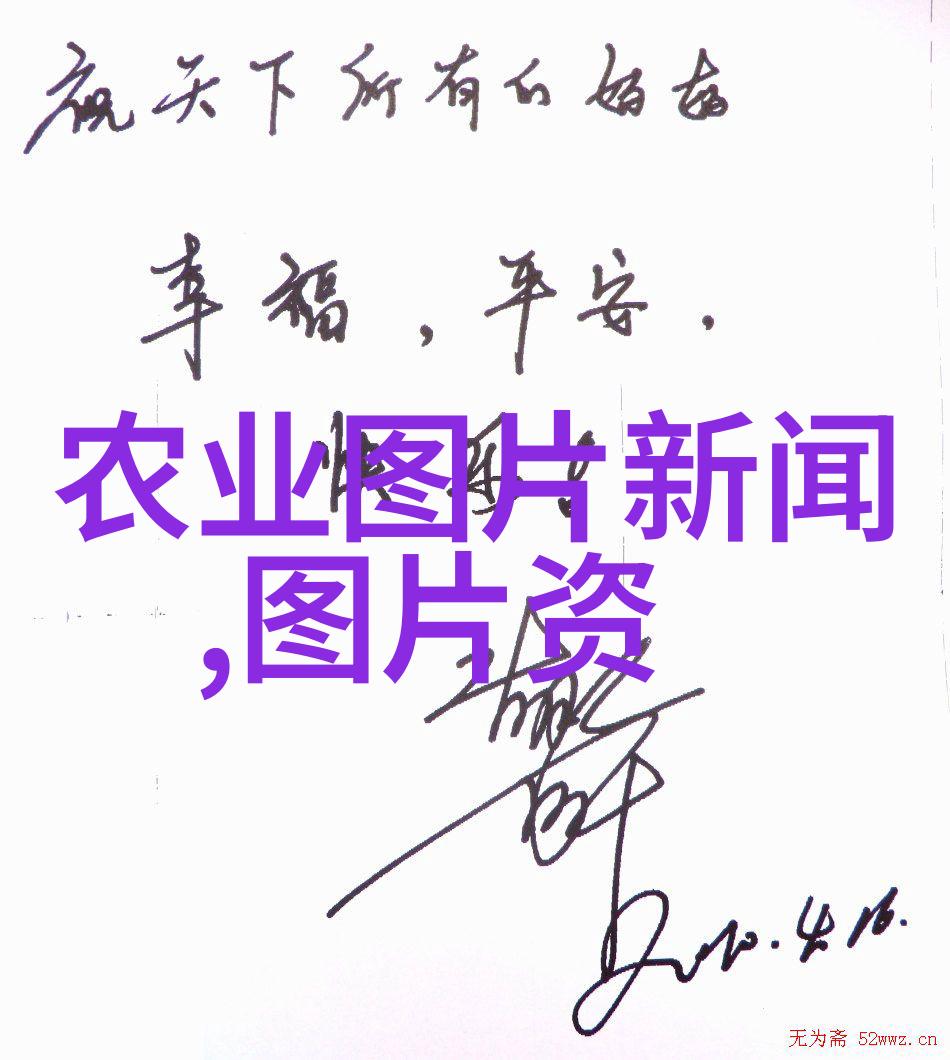 祝天下所有的妈妈
幸福，平安，
快乐！
农业图片新闻
,图片资
2010.4.16.
无为斋 52wwz.cn